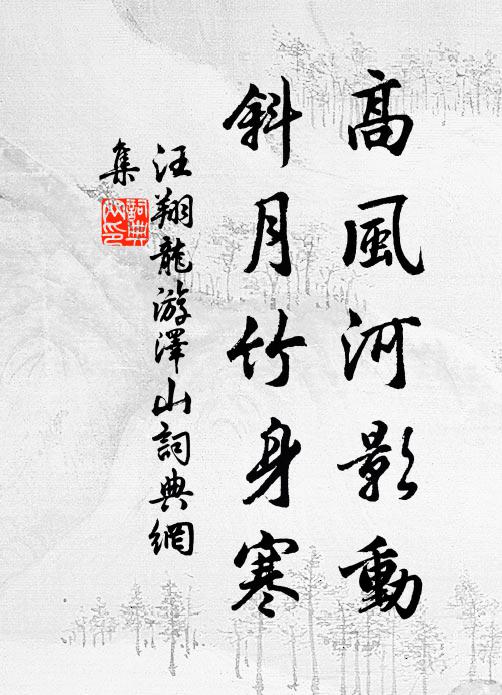 高風河影動
斜月竹身寒
汪翔龍游澤山詞典網
集
詞典網印